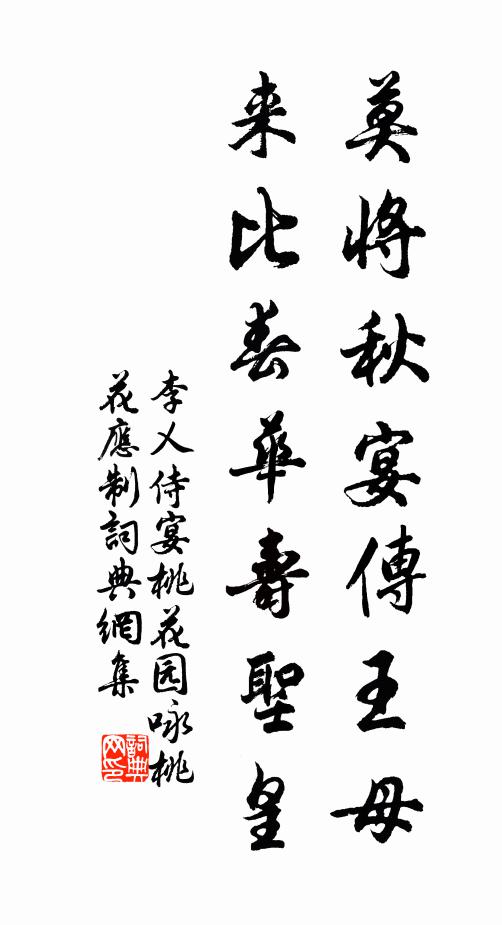 莫將秋宴傳王母
来比春華壽聖皇
李乂侍宴桃花园咏桃
花應制詞典網集
詞典
网印